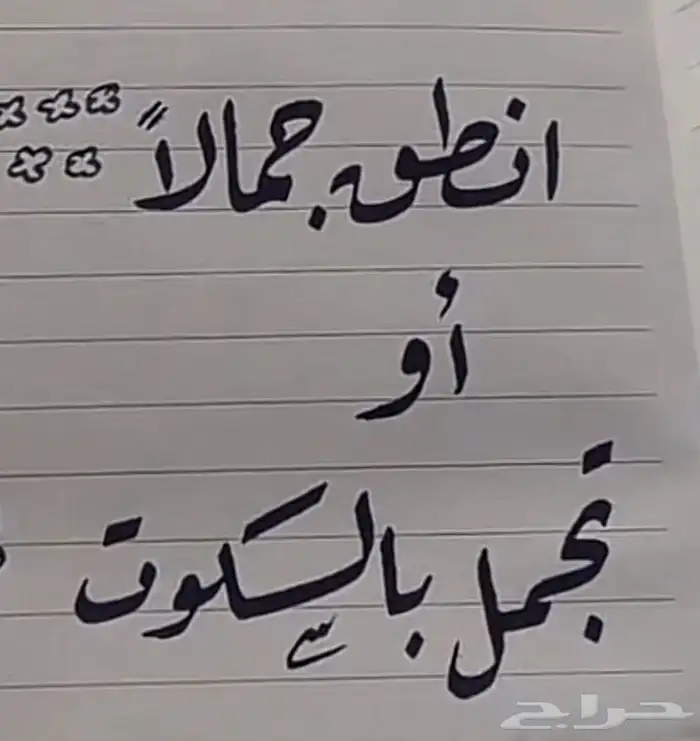 انطق جمالاً
أو
تجمل بالسكوت
حراج